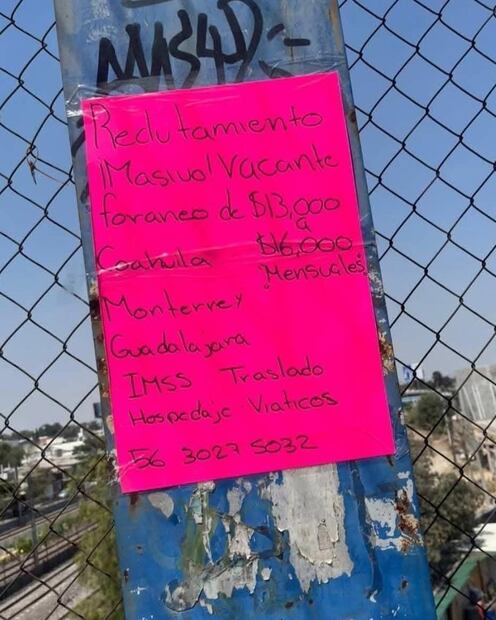 Reclutamiento
¡Masivo! Vacante
foraneo de $13,000
a
Coahuila $16,000
Mensuales
Monterrey
Guadalajara
IMSS Traslado
Hospedaje Viaticos
56 3027 5032